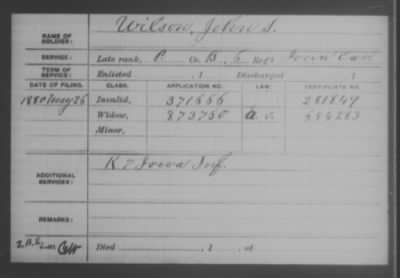 NAME OF SOLDIER: Wilson, John S.
SERVICE: Late rank, P. Co. B, 5 Reg't Iowa Cav
TERM OF SERVICE: Enlisted , 1 Discharged , 1
DATE OF FILING. CLASS. APPLICATION NO. LAW. CERTIFICATE NO.
1880 May 26 Invalid, 371666 281849
Widow, 873750 a.c.
Minor,
ADDITIONAL SERVICES: K 7 Iowa Inf.
REMARKS:
Died , 1 , at